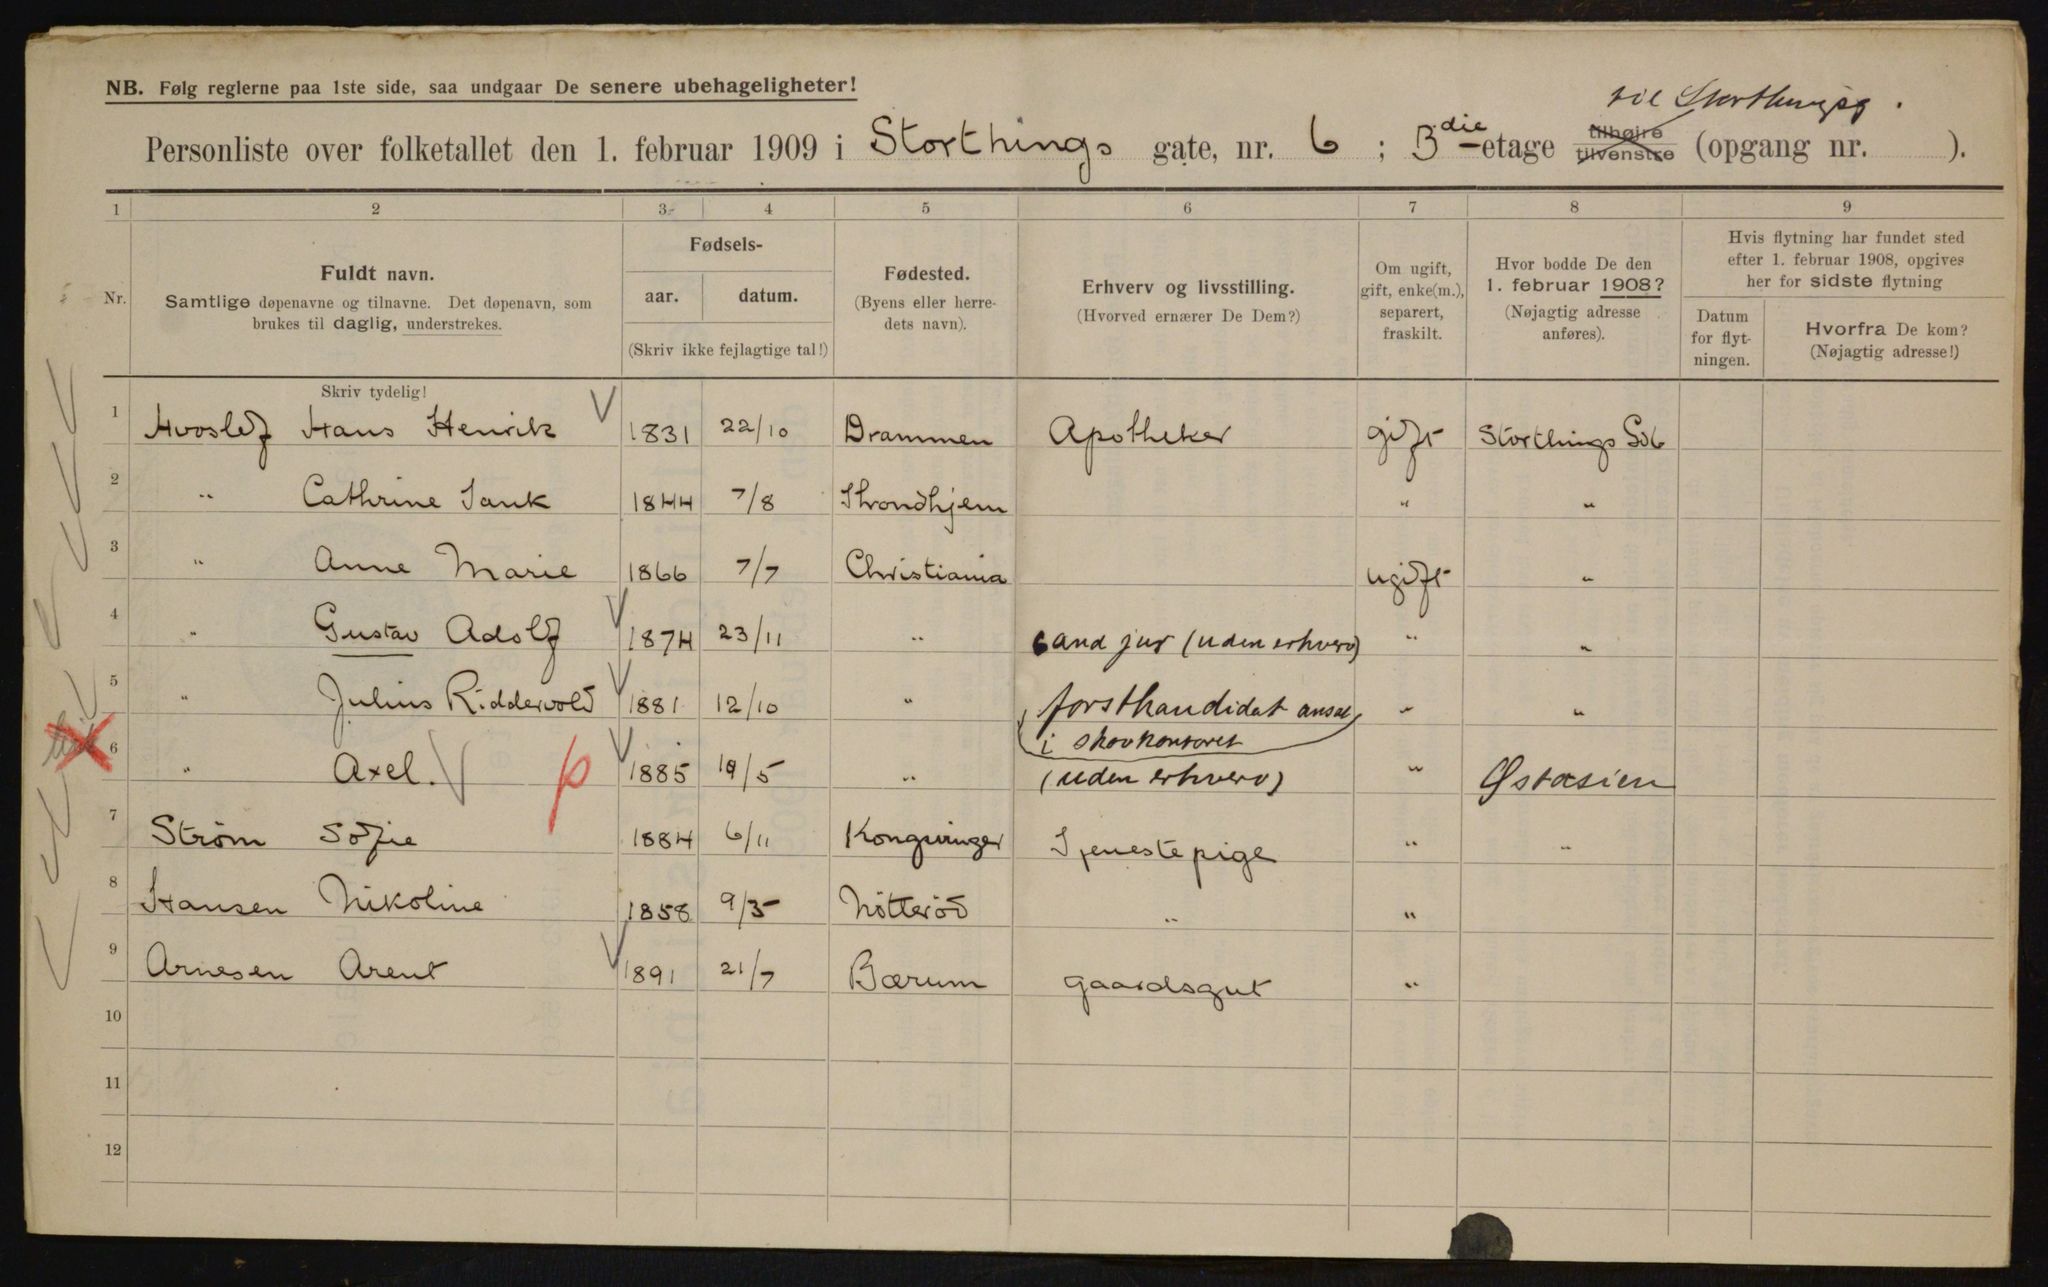 NB. Følg reglerne paa 1ste side, saa undgaar De senere ubehageligheter!
til Storthingsg.
Personliste over folketallet den 1. februar 1909 i Storthings gate, nr. 6 ; 3die etage tilhøire tilvenstre (opgang nr. ).
1 2 3 4 5 6 7 8 9
Nr.
Fuldt navn.
Samtlige døpenavne og tilnavne. Det døpenavn, som
brukes til daglig, understrekes.
Fødsels-
aar. datum.
(Skriv ikke fejlagtige tal!)
Fødested.
(Byens eller herre-
dets navn).
Erhverv og livsstilling.
(Hvorved ernærer De Dem?)
Om ugift,
gift, enke(m.),
separert,
fraskilt.
Hvor bodde De den
1. februar 1908?
(Nøjagtig adresse
anføres).
Hvis flytning har fundet sted
efter 1. februar 1908, opgives
her for sidste flytning
Datum
for flyt-
ningen.
Hvorfra De kom?
(Nøjagtig adresse!)
Skriv tydelig!
1 Hvoslef Hans Henrik 1831 22/10 Drammen Apotheker gift Storthings Gd 6
2 " Cathrine Tank 1844 7/8 Throndhjem " "
3 " Anne Marie 1866 7/7 Christiania ugift "
4 " Gustav Adolf 1874 23/11 " cand jur (uden erhverv) " "
5 " Julius Riddervold 1881 12/10 " forstkandidat ansat " "
i skovkontoret
6 " Axel. 1885 19/5 " (uden erhverv) " Østasien
7 Strøm Sofie 1884 6/11 Kongsvinger Tjenestepige " "
8 Hansen Nikoline 1858 9/5 Nötteröd " "
9 Arnesen Arent 1891 21/7 Bærum gaardsgut "
10
11
12